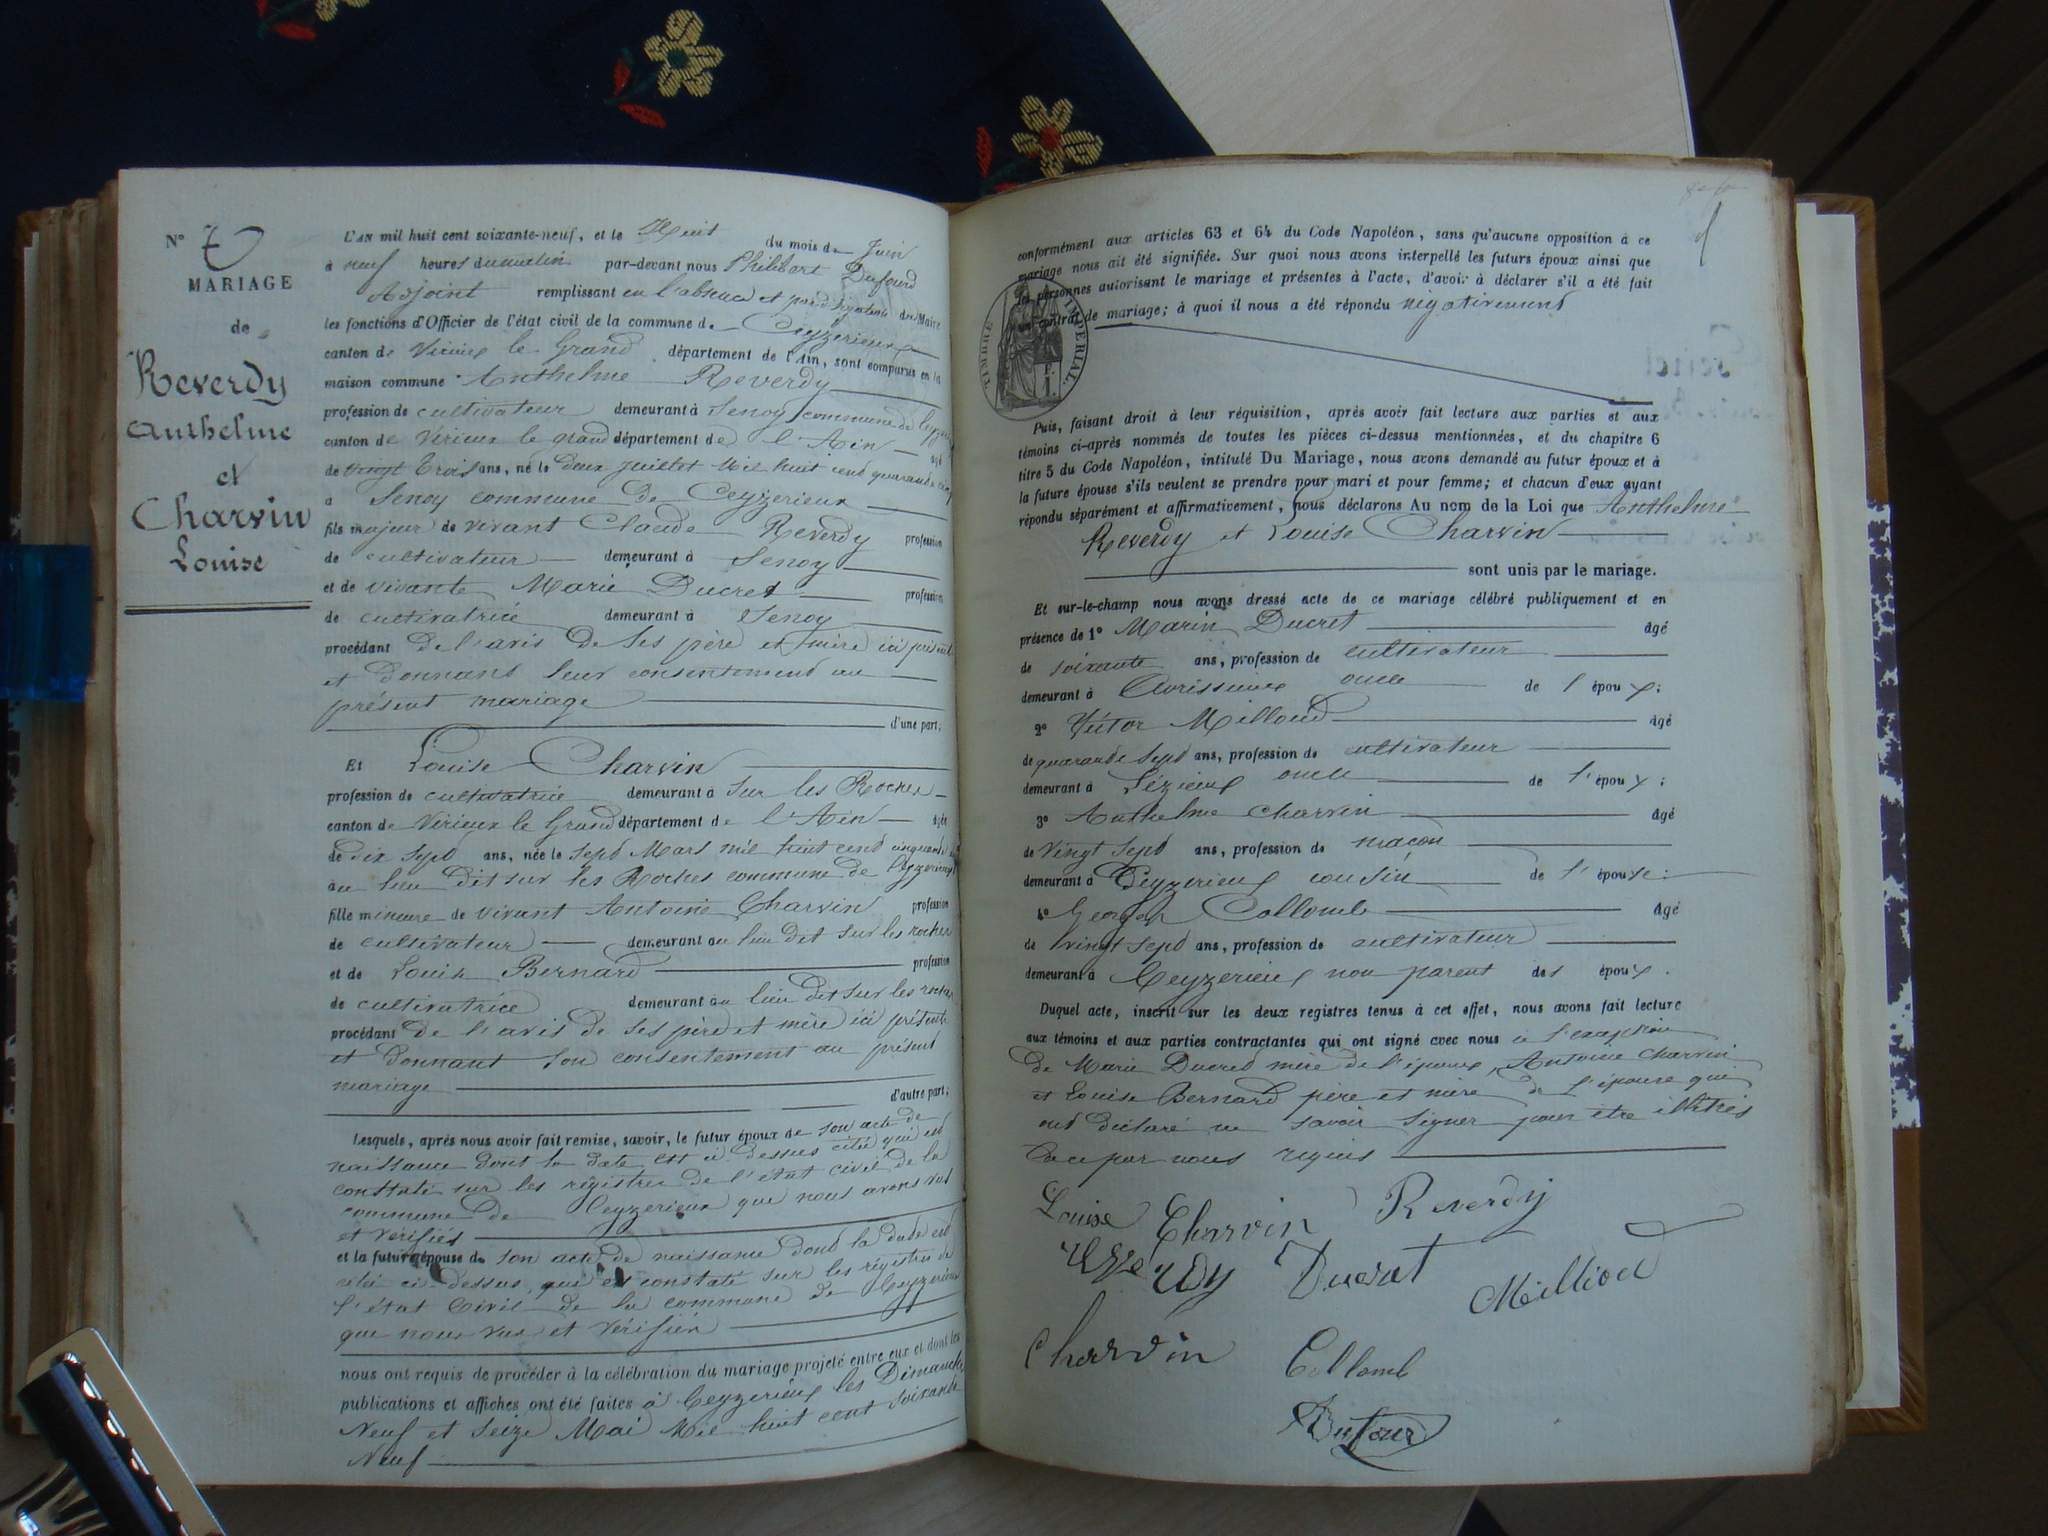 N° 7
MARIAGE
de
Reverdy
Anthelme
et
Charvin
Louise
L'AN mil huit cent soixante-neuf, et le Huit du mois de Juin
à neuf heures du matin par-devant nous Philibert Dufourd
Adjoint remplissant en l'absence et par délégation du Maire
les fonctions d'Officier de l'état civil de la commune de Ceyzerieux
canton de Virieux le Grand département de l'Ain, sont comparus en la
maison commune Anthelme Reverdy
profession de cultivateur demeurant à Senoy commune de
canton de Virieux le grand département de l'Ain âgé
de vingt trois ans, né le deux Juillet Mil huit cent quarante cinq
à Senoy commune de Ceyzerieux
fils majeur de vivant Claude Reverdy profession
de cultivateur demeurant à Senoy
et de vivante Marie Ducret profession
de cultivatrice demeurant à Senoy
procédant de l'avis de ses père et mère ici présents
et donnant leur consentement au
présent mariage
d'une part;
Et Louise Charvin
profession de cultivatrice demeurant à sur les Roches
canton de Virieux le Grand département de l'Ain âgée
de dix sept ans, née le sept Mars mil huit cent cinquante
au lieu dit sur les Roches commune de Ceyzerieux
fille mineure de vivant Antoine Charvin profession
de cultivateur demeurant au lieu dit sur les roches
et de Louise Bernard profession
de cultivatrice demeurant au lieu dit sur les roches
procédant de l'avis de ses père et mère ici présents
et donnant son consentement au présent
mariage
d'autre part;
Lesquels, après nous avoir fait remise, savoir, le futur époux de son acte de
naissance dont la date est ci dessus citée qui est
constaté sur les régistres de l'état civil de la
commune de Ceyzerieux que nous avons vus
et vérifiés
et la future épouse de son acte de naissance dont la date est
citée ci dessus, qui est constaté sur les régistres de
l'état Civil de la commune de Ceyzerieux
que nous vus et vérifiés
nous ont requis de procéder à la célébration du mariage projeté entre eux et dont les
publications et affiches ont été faites à Ceyzerieux les Dimanches
Neuf et seize Mai Mil huit cent soixante
Neuf
conformément aux articles 63 et 64 du Code Napoléon, sans qu'aucune opposition à ce
mariage nous ait été signifiée. Sur quoi nous avons interpellé les futurs époux ainsi que
les personnes autorisant le mariage et présentes à l'acte, d'avoir à déclarer s'il a été fait
un contrat de mariage; à quoi il nous a été répondu négativement
TIMBRE IMPERIAL.
Puis, faisant droit à leur réquisition, après avoir fait lecture aux parties et aux
témoins ci-après nommés de toutes les pièces ci-dessus mentionnées, et du chapitre 6
titre 5 du Code Napoléon, intitulé Du Mariage, nous avons demandé au futur époux et à
la future épouse s'ils veulent se prendre pour mari et pour femme; et chacun d'eux ayant
répondu séparément et affirmativement, nous déclarons Au nom de la Loi que Anthelme
Reverdy et Louise Charvin
sont unis par le mariage.
Et sur-le-champ nous avons dressé acte de ce mariage célébré publiquement et en
présence de 1° Marin Ducret âgé
de soixante ans, profession de cultivateur
demeurant à oncle de l'époux;
2° Victor Milloud âgé
de quarante sept ans, profession de cultivateur
demeurant à Lézieux oncle de l'époux;
3° Anthelme Charvin âgé
de vingt sept ans, profession de maçon
demeurant à Ceyzerieux cousin de l'épouse;
4° Georges Collomb âgé
de vingt sept ans, profession de cultivateur
demeurant à Ceyzerieux non parent des époux.
Duquel acte, inscrit sur les deux registres tenus à cet effet, nous avons fait lecture
aux témoins et aux parties contractantes qui ont signé avec nous à l'exception
de Marie Ducret mère de l'époux, Antoine Charvin
et Louise Bernard père et mère de l'épouse qui
ont déclaré ne savoir signer pour être illétrés
de ce par nous requis
Louise Charvin Reverdy
Reverdy Ducrat Milliod
Charvin Collomb
Dufour